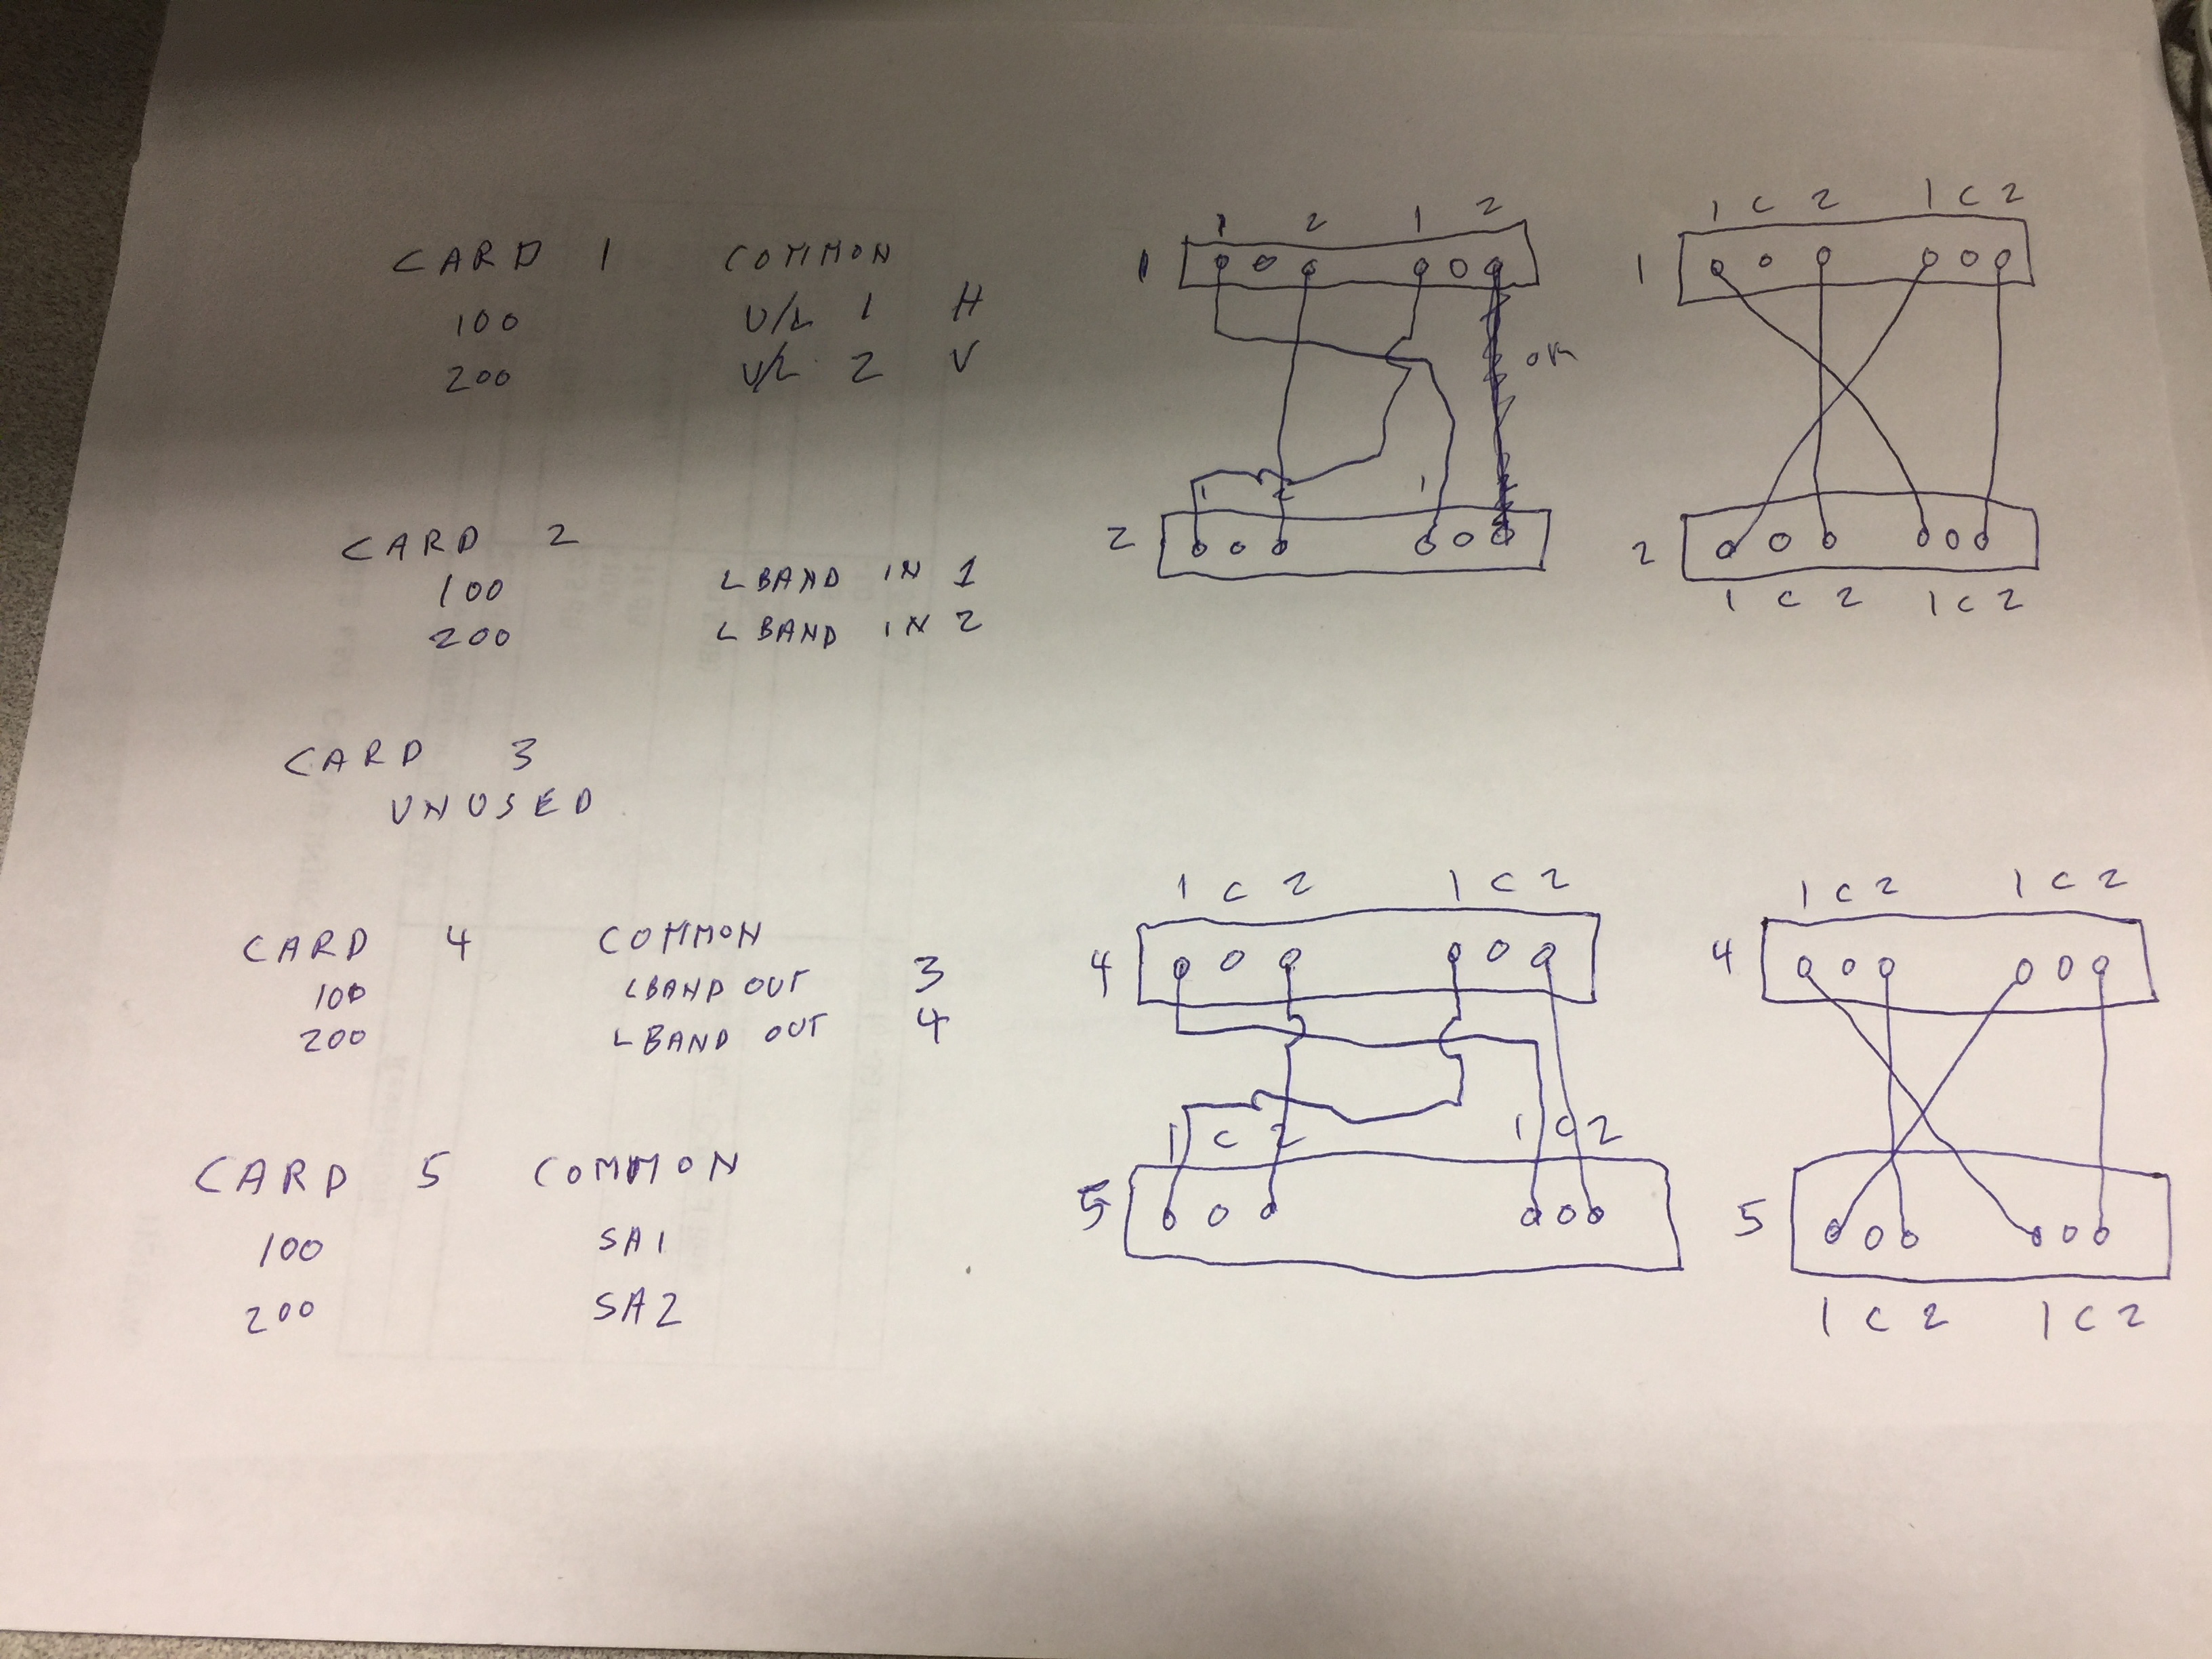 CARD 1 COMMON
100 U/L 1 H
200 U/L 2 V
CARD 2
100 L BAND IN 1
200 L BAND IN 2
CARD 3
UNUSED
CARD 4 COMMON
100 LBAND OUT 3
200 L BAND OUT 4
CARD 5 COMMON
100 SA1
200 SA2
1 2 1 2
1
OK
1 2 1
2
1 C 2 1 C 2
1
2
1 C 2 1 C 2
1 C 2 1 C 2
4
1 C 2 1 C 2
5
1 C 2 1 C 2
4
5
1 C 2 1 C 2